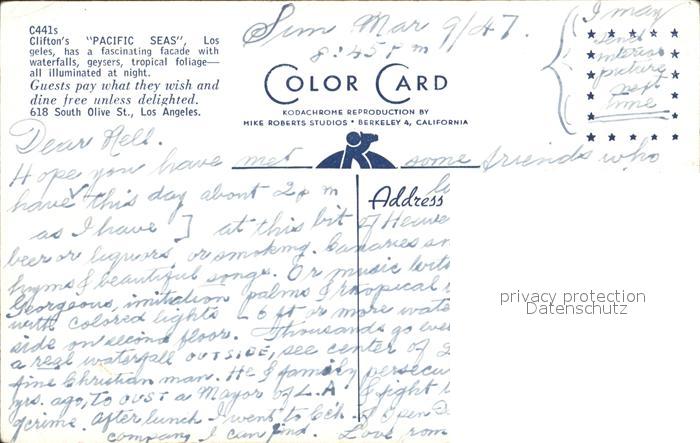 C441s
Clifton's "PACIFIC SEAS", Los
geles, has a fascinating facade with
waterfalls, geysers, tropical foliage—
all illuminated at night.
Guests pay what they wish and
dine free unless delighted.
618 South Olive St., Los Angeles.
Sun Mar 9/47.
8:45 P m
I may
send
interior
picture
next
time
COLOR CARD
KODACHROME REPRODUCTION BY
MIKE ROBERTS STUDIOS • BERKELEY 4, CALIFORNIA
Address
Dear Nell.
Hope you have met some friends who
have this day about 2 p m
as I have ] at this bit of Heaven
beer or liquors or smoking. Canaries
hyms & beautiful songs. Or music
Gorgeous, imitation palms & tropical
with colored lights - 6 ft or more
side on second floor. Thousands go
a real waterfall OUTSIDE, see center of
fine Christian man. He & family
yrs. ago, TO OUST a Mayor of L.A. & fight
crime. After lunch I went to Ech.
company I can find. Love
privacy protection
Datenschutz